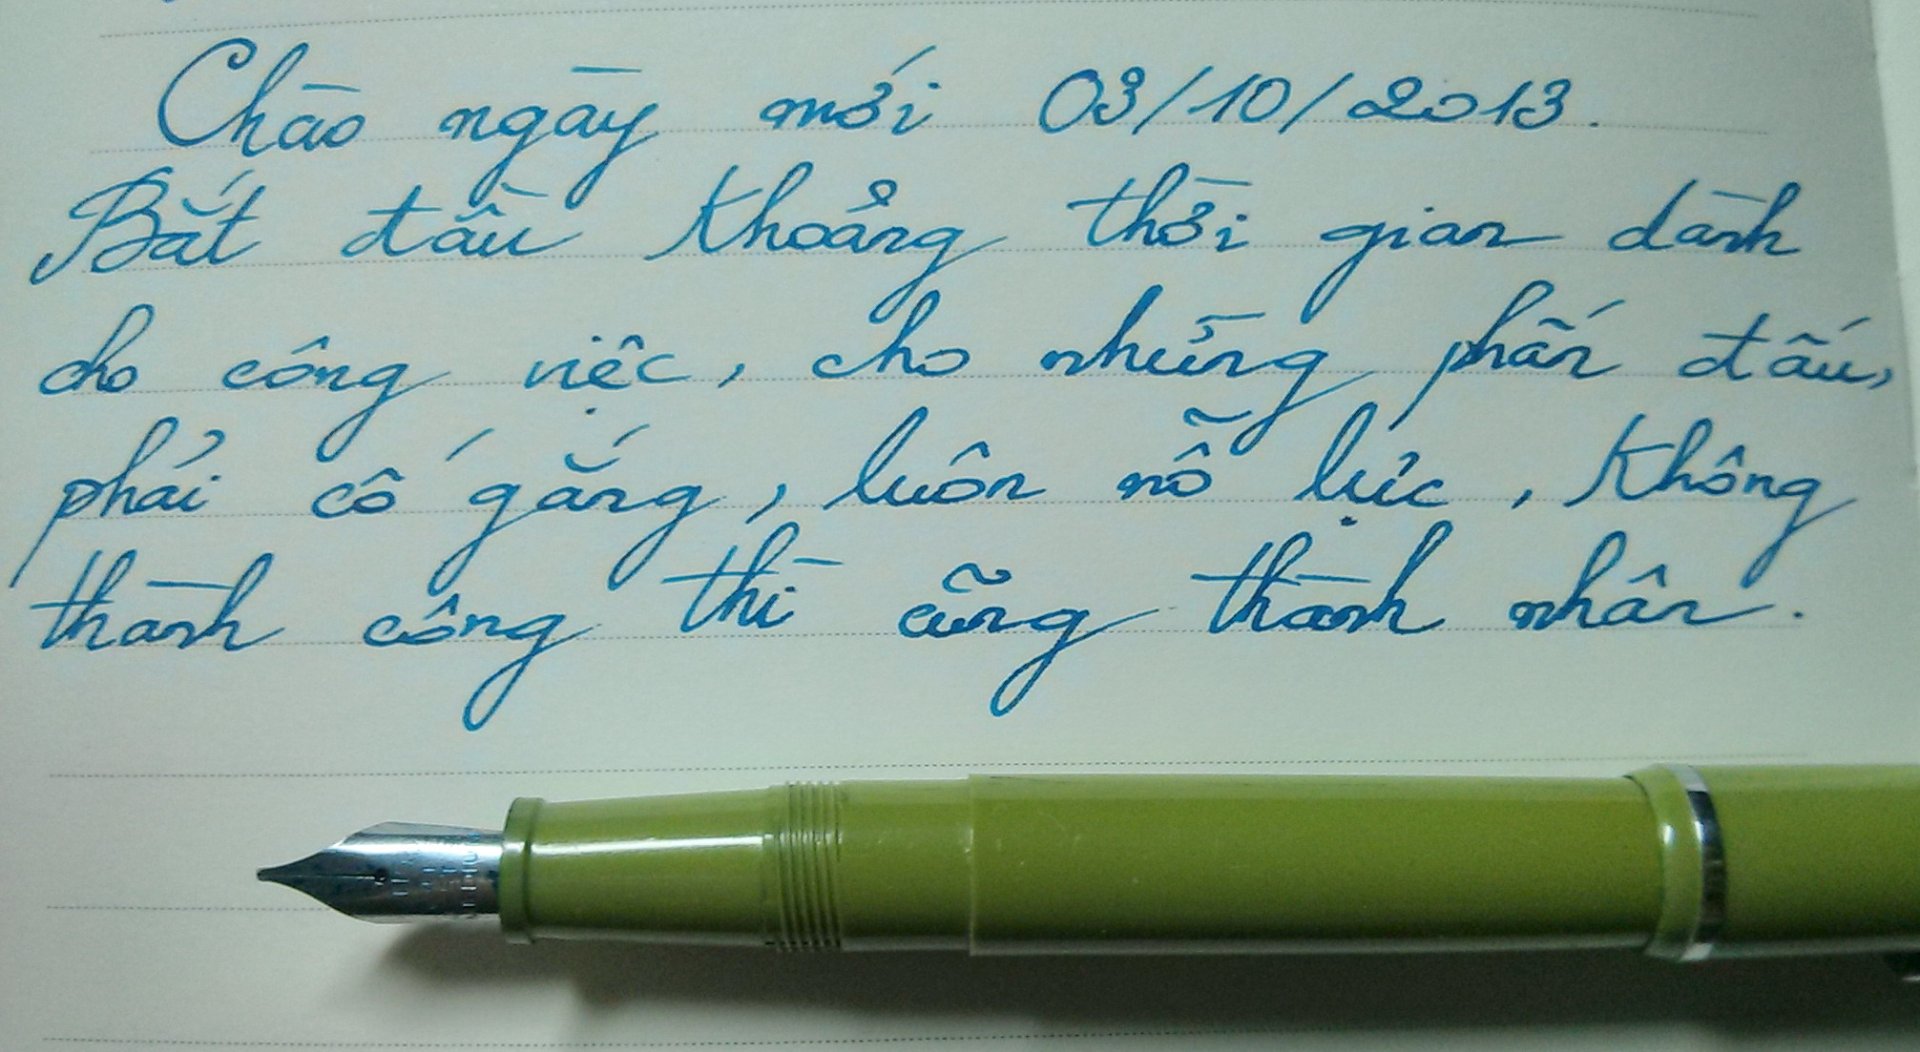 Chào ngày mới 03/10/2013.
Bắt đầu khoảng thời gian dành
cho công việc, cho những phấn đấu,
phải cố gắng, luôn nỗ lực, không
thành công thì cũng thành nhân.